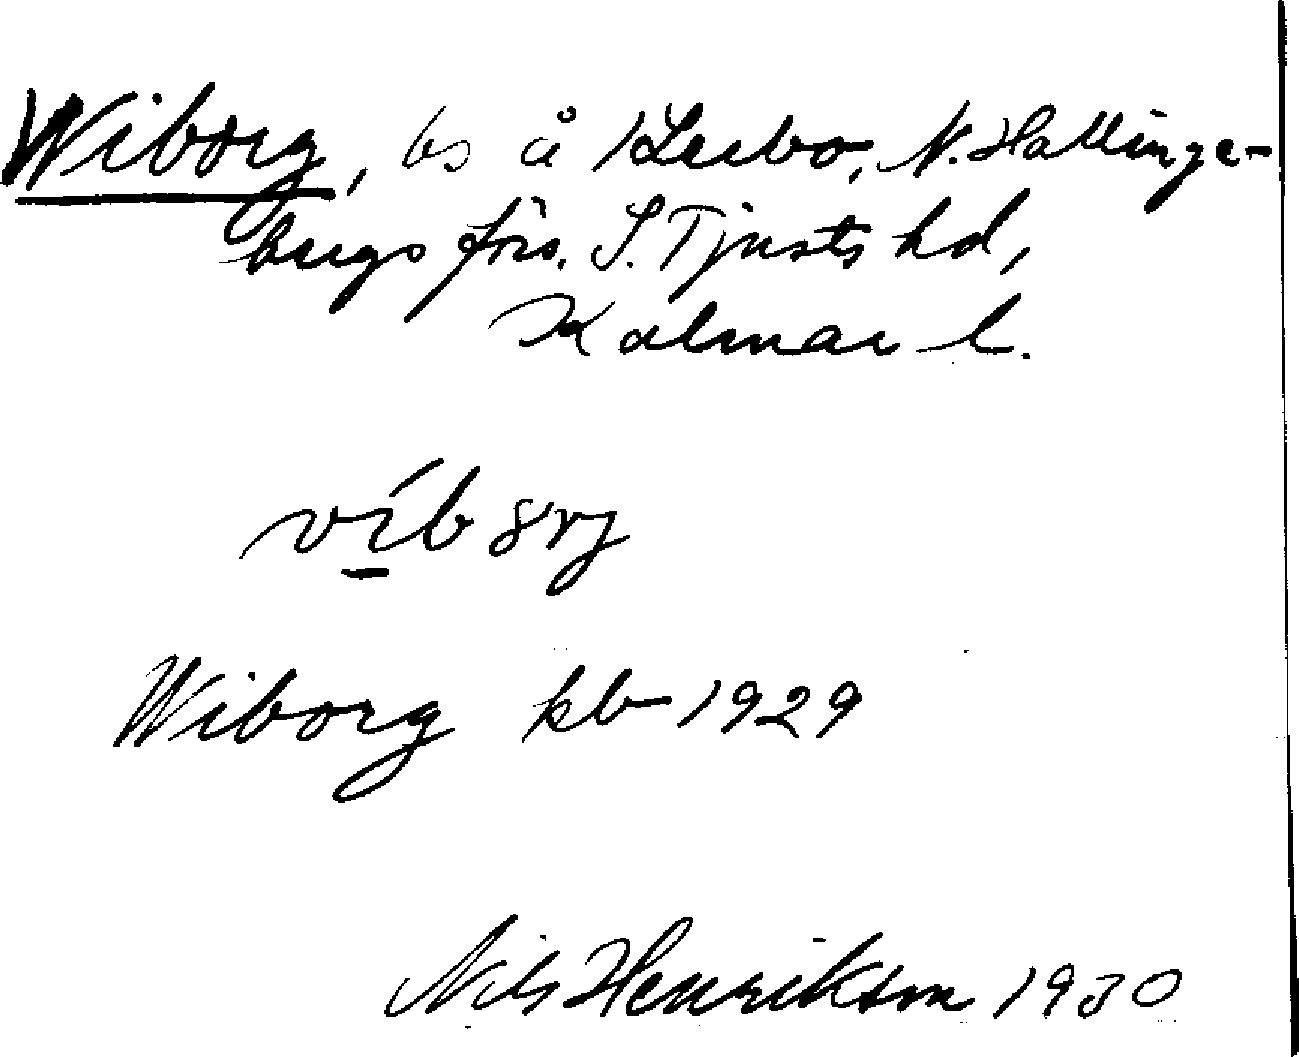 Wiborg, bs å 1 Lerbo, N. Hallinge-
bergsförs. S. Tjusts hd,
Kalmar l.
víb
Wiborg kb 1929
Nils Henrikson 1930